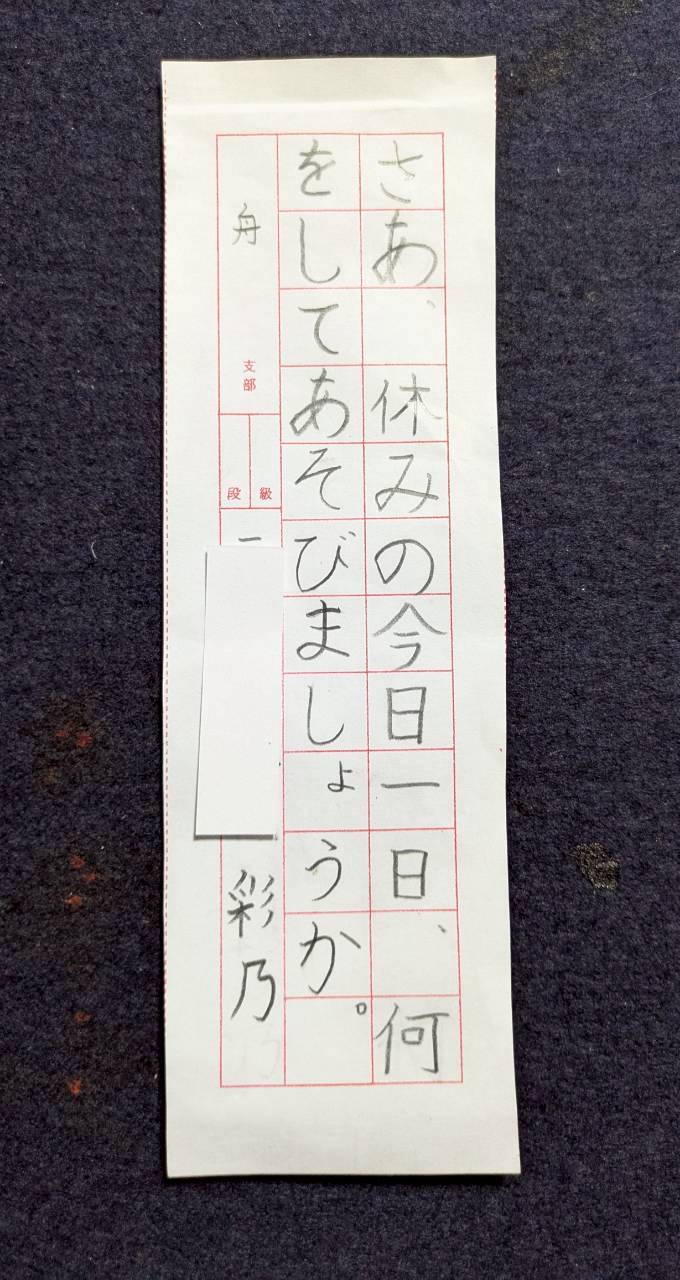 さあ、休みの今日一日、何
をしてあそびましょうか。
舟支部
級
段
彩乃